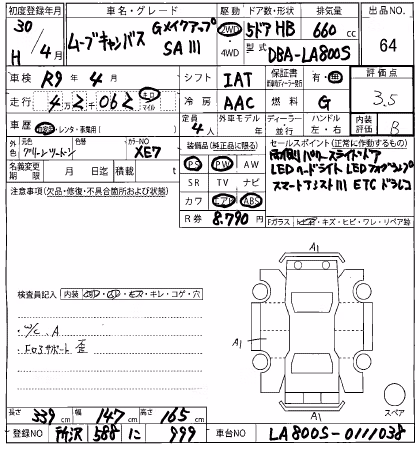 初度登録年月 車名・グレード 駆動 ドア数・形状 排気量 出品NO
30 H/4月 ムーブキャンバス Gメイクアップ SAIII 2WD 5ドア HB 660 cc
4WD 型式 DBA-LA800S 64
車検 R9年4月 シフト IAT 保証書 有・無 評価点
走行 4万2千062 キロ マイル 冷房 AAC 燃料 G 3.5
車歴 自家用・レンタ・事業用( ) 定員 4人 外車モデル 年 ディーラー 並行 ハンドル 左・右 内装評価 B
外色 元色 グリーンツートン 色 カラーNO XE7
装備品(純正品に限る) セールスポイント(正常に作動するもの)
名義変更期限 月 日迄 積載 t
PS PW AW 両側パワースライドドア
LEDヘードライト LEDフォグランプ
注意事項(欠品・修復・不具合箇所および状態) SR TV ナビ スマートアシストIII ETC ドラレコ
カワ エアB ABS
R券 8.790円 Fガラス トビ石・キズ・ヒビ・ワレ・リペア跡
A1
検査員記入 内装 ヨゴレ・スレ・キズ・キレ・コゲ・穴
W/C、A
FロアサポートA歪
A1
A1
スペア
長さ 339 cm 幅 147 cm 高さ 165 cm
登録NO 所沢 588 に 999 車台NO LA800S-0111038